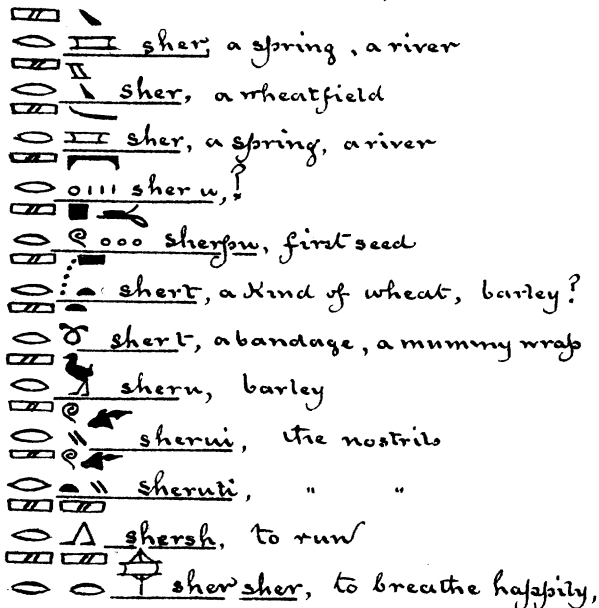 sher, a spring, a river
sher, a wheatfield
sher, a spring, a river
sher u, ?
sherpu, first seed
shert, a kind of wheat, barley?
shert, a bandage, a mummy wrap
sheru, barley
sherui, the nostrils
sheruti, " "
shersh, to run
sher sher, to breathe happily,